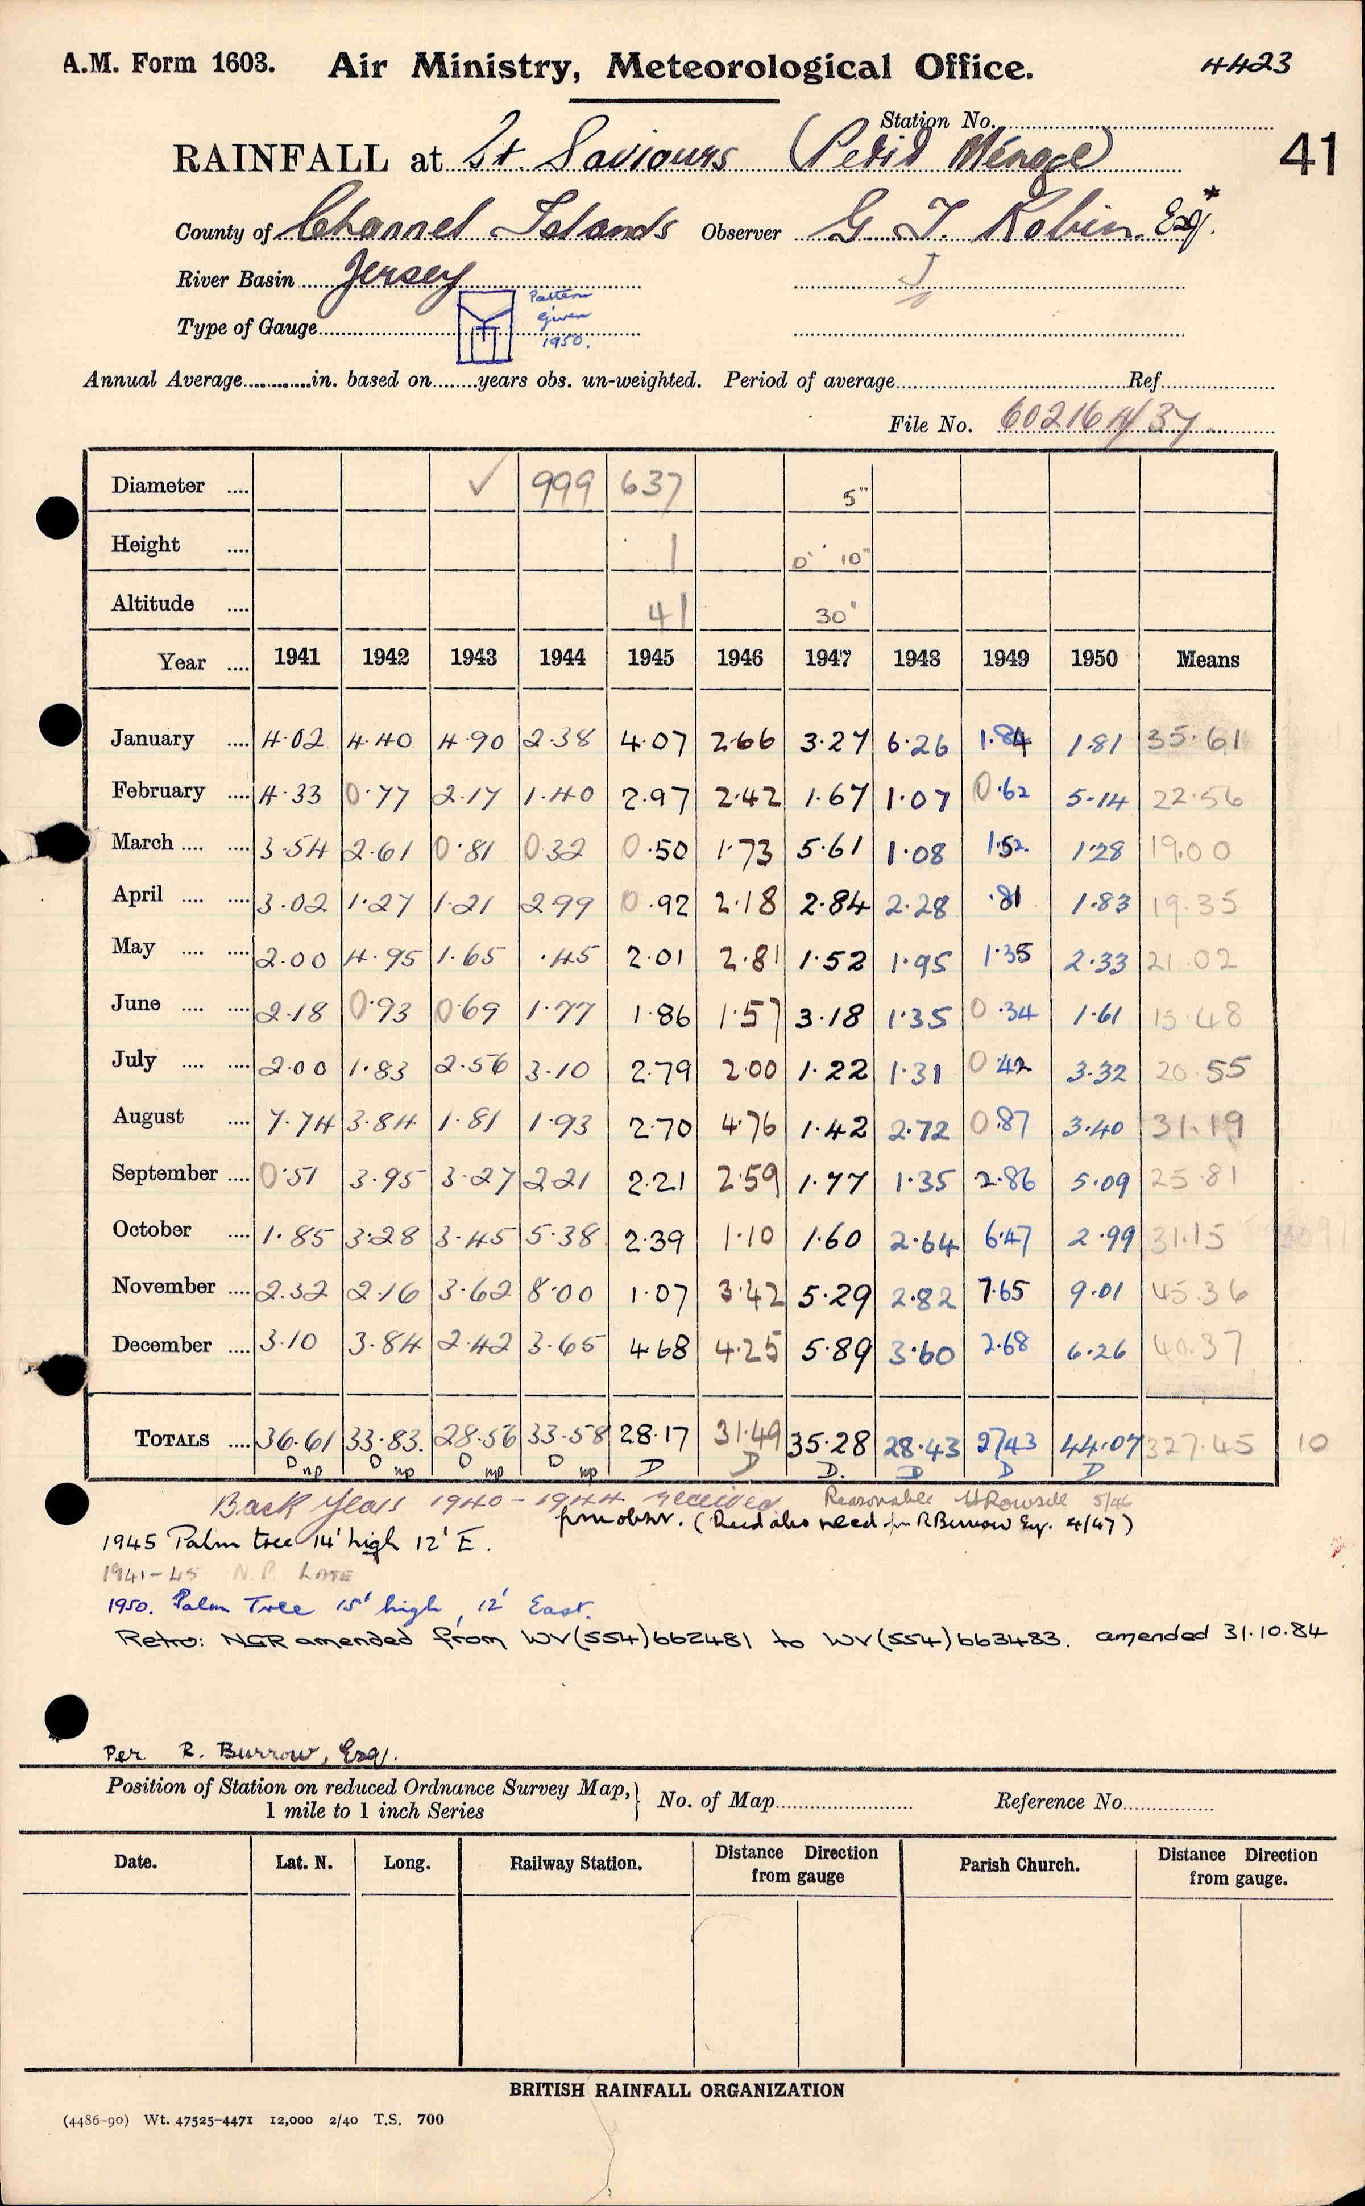 A.M. Form 1603. Air Ministry, Meteorological Office. 4423
Station No.
RAINFALL at St. Saviours (Petit Ménage) 41
County of Channel Islands Observer G. T. Robin Esq.*
River Basin Jersey
Type of Gauge Pattern given 1950.
Annual Average in. based on years obs. un-weighted. Period of average Ref
File No. 60216H/37
Diameter .... ✓ 999 637 5"
Height .... 1 0' 10"
Altitude .... 41 30'
Year .... 1941 1942 1943 1944 1945 1946 1947 1948 1949 1950 Means
January .... 4.02 4.40 4.90 2.38 4.07 2.66 3.27 6.26 1.84 1.81 35.61
February .... 4.33 0.77 2.17 1.40 2.97 2.42 1.67 1.07 0.62 5.14 22.56
March .... .... 3.54 2.61 0.81 0.32 0.50 1.73 5.61 1.08 1.52 1.28 19.00
April .... .... 3.02 1.27 1.21 2.99 0.92 2.18 2.84 2.28 .81 1.83 19.35
May .... .... 2.00 4.95 1.65 .45 2.01 2.81 1.52 1.95 1.35 2.33 21.02
June .... .... 2.18 0.93 0.69 1.77 1.86 1.57 3.18 1.35 0.34 1.61 15.48
July .... .... 2.00 1.83 2.56 3.10 2.79 2.00 1.22 1.31 0.42 3.32 20.55
August .... 7.74 3.84 1.81 1.93 2.70 4.76 1.42 2.72 0.87 3.40 31.19
September .... 0.51 3.95 3.27 2.21 2.21 2.59 1.77 1.35 2.86 5.09 25.81
October .... 1.85 3.28 3.45 5.38 2.39 1.10 1.60 2.64 6.47 2.99 31.15
November .... 2.32 2.16 3.62 8.00 1.07 3.42 5.29 2.82 7.65 9.01 45.36
December .... 3.10 3.84 2.42 3.65 4.68 4.25 5.89 3.60 2.68 6.26 40.37
TOTALS .... 36.61 33.83. 28.56 33.58 28.17 31.49 35.28 28.43 27.43 44.07 327.45 10
D np D np D np D np D D D. D D D
Back Years 1940-1944 received Reasonable 5/46
from obsr. (Read also need for R Burrow Esq. 4/47)
1945 Palm tree 14' high 12' E.
1941-45 N.P. LATE
1950. Palm Tree 15' high, 12' East.
Retro: NGR amended from WV(554)662481 to WV(554)663483. amended 31.10.84
Per R. Burrow, Esq.
Position of Station on reduced Ordnance Survey Map, 1 mile to 1 inch Series } No. of Map Reference No.
Date. Lat. N. Long. Railway Station. Distance Direction from gauge Parish Church. Distance Direction from gauge.
BRITISH RAINFALL ORGANIZATION
(4486-90) Wt. 47525-4471 12,000 2/40 T.S. 700